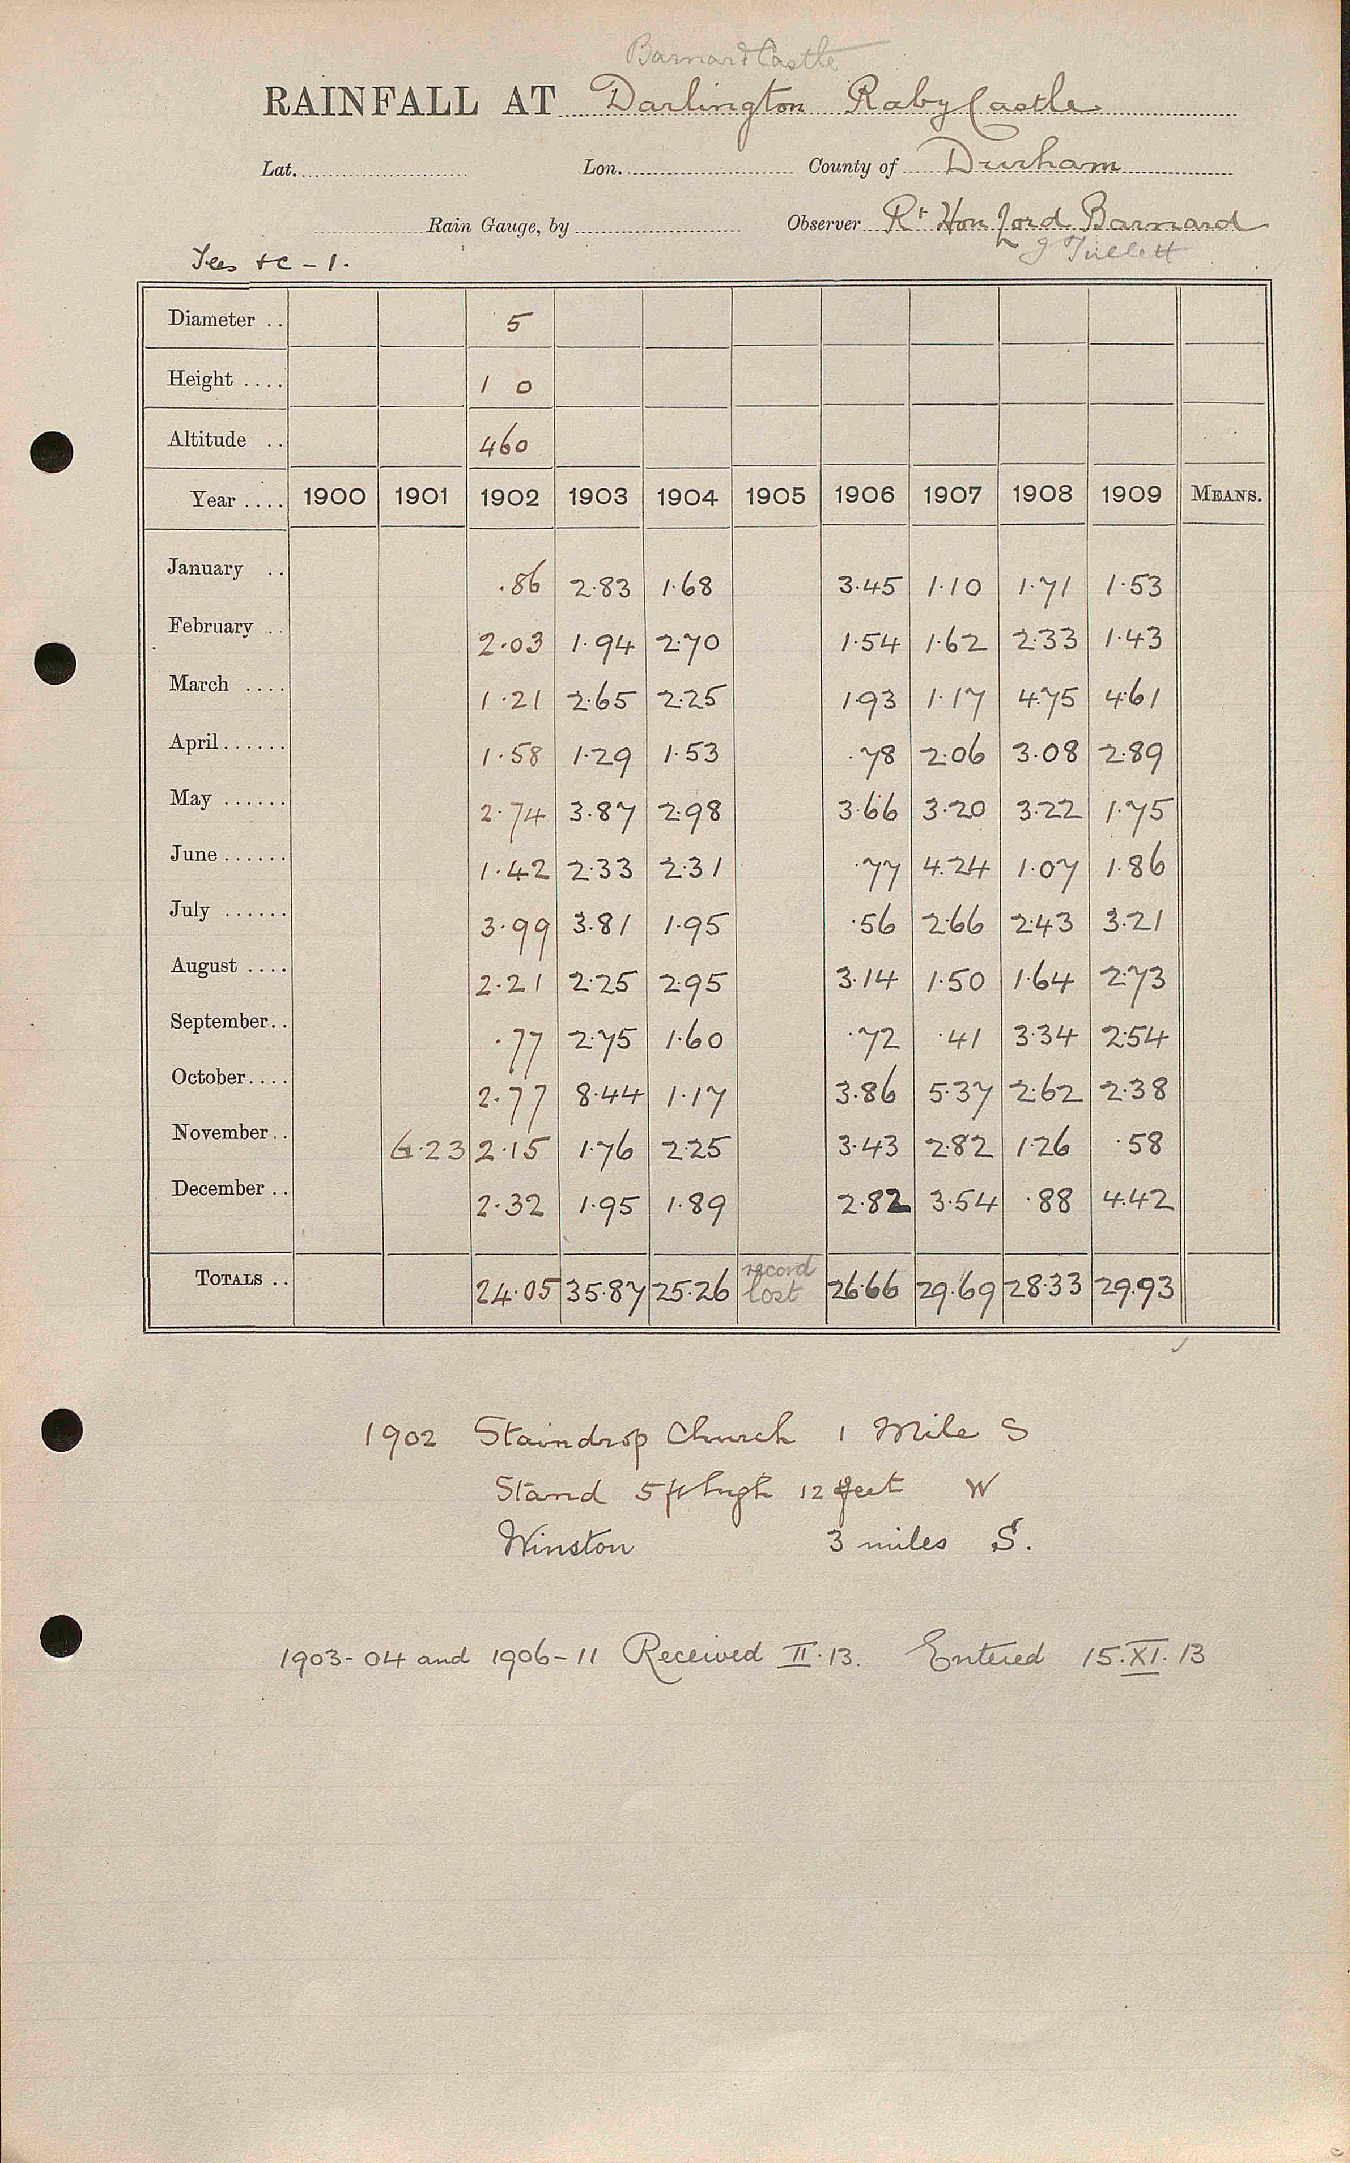 Barnard Castle
RAINFALL AT Darlington Raby Castle
Lat. Lon. County of Durham
Rain Gauge, by Observer Rt Hon Lord Barnard
J Tullett
Tees &c - 1.
Diameter .. 5
Height .... 1 0
Altitude .. 460
Year .... 1900 1901 1902 1903 1904 1905 1906 1907 1908 1909 MEANS.
January .. .86 2.83 1.68 3.45 1.10 1.71 1.53
February .. 2.03 1.94 2.70 1.54 1.62 2.33 1.43
March .... 1.21 2.65 2.25 1.93 1.17 4.75 4.61
April...... 1.58 1.29 1.53 .78 2.06 3.08 2.89
May ...... 2.74 3.87 2.98 3.66 3.20 3.22 1.75
June...... 1.42 2.33 2.31 .77 4.24 1.07 1.86
July ...... 3.99 3.81 1.95 .56 2.66 2.43 3.21
August .... 2.21 2.25 2.95 3.14 1.50 1.64 2.73
September.. .77 2.75 1.60 .72 .41 3.34 2.54
October.... 2.77 8.44 1.17 3.86 5.37 2.62 2.38
November.. 6.23 2.15 1.76 2.25 3.43 2.82 1.26 .58
December .. 2.32 1.95 1.89 2.82 3.54 .88 4.42
TOTALS .. 24.05 35.87 25.26 record lost 26.66 29.69 28.33 29.93
1902 Staindrop Church 1 Mile S
Stand 5 ft high 12 feet W
Winston 3 miles S.
1903-04 and 1906-11 Received II.13. Entered 15.XI.13